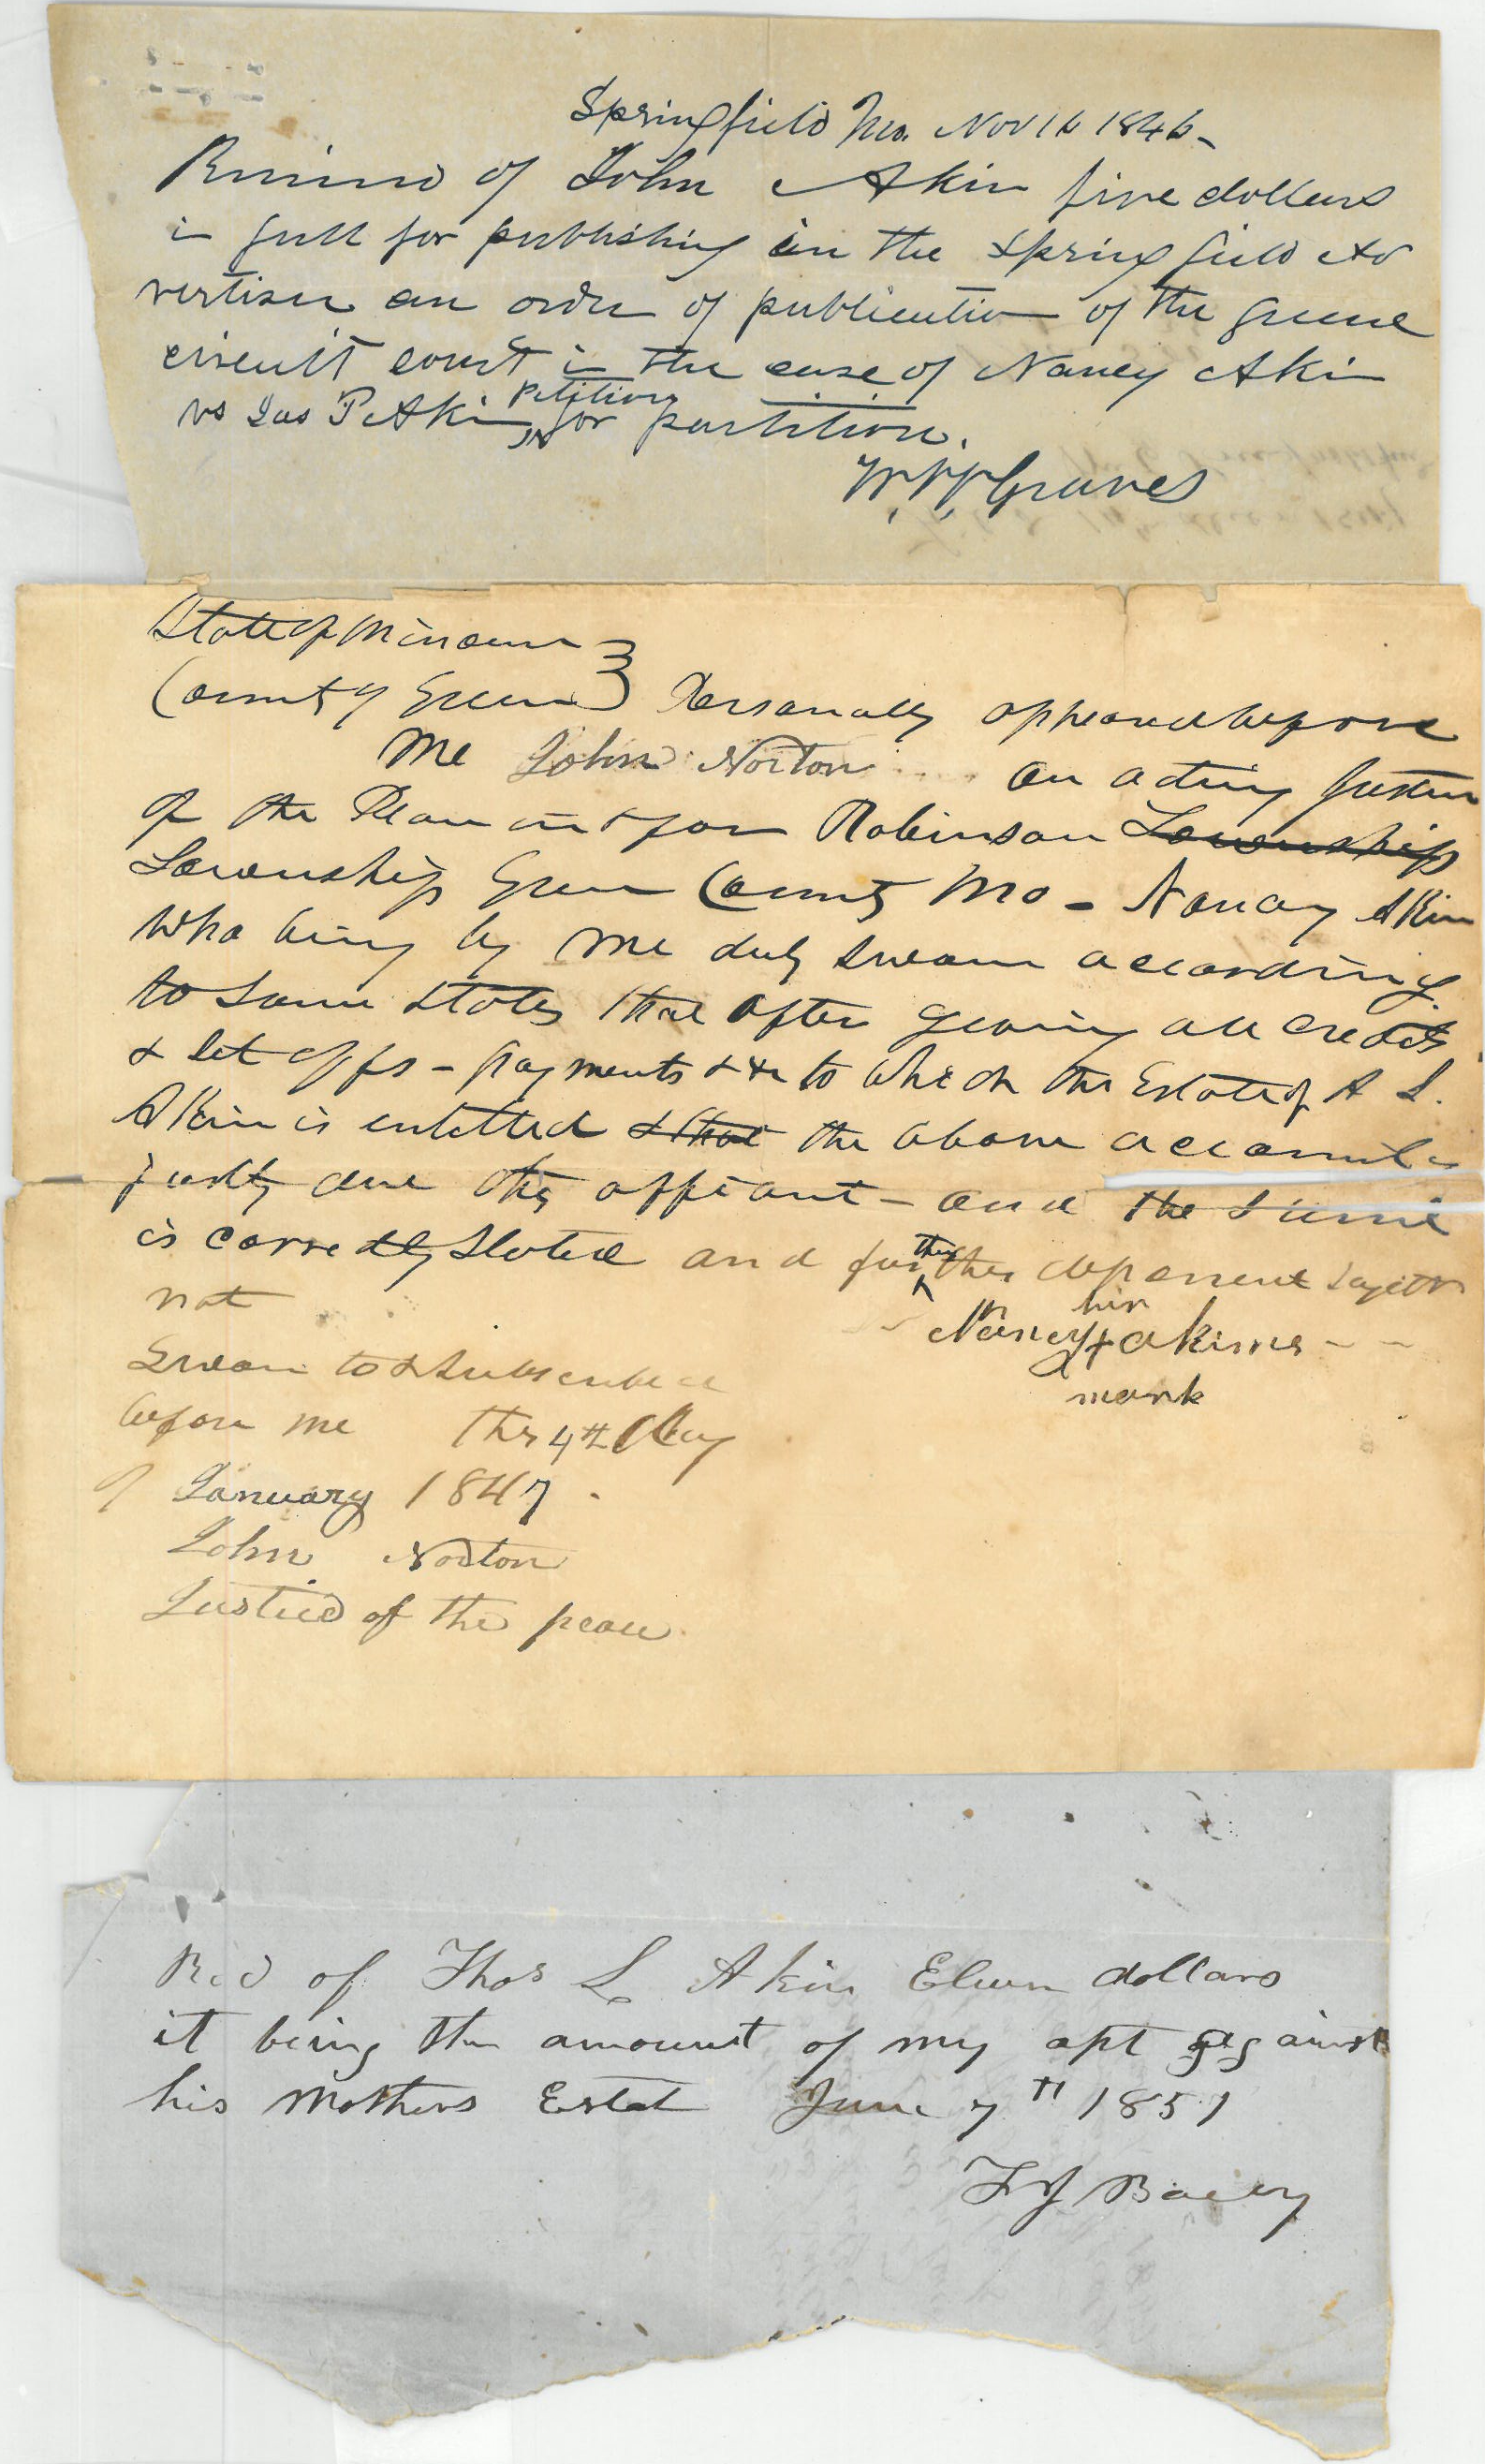 Springfield Mo. Nov 16 1846-
Received of John Akin five dollars
in full for publishing in the Springfield Ad
vertiser an order of publication of the Greene
circuit court in the case of Nancy Akin
Petition
vs Jas P Akin, for partition.
W. H. Graves
State of Missouri }
County of Green } Personally appeared before
me John Norton an acting Justice
of the Peace in & for Robinson Township
Township Green County Mo - Nancy Akin
who being by me duly sworn according
to Law states that after giving all credits
& set offs - payments &c to which the Estate of A L.
Akin is entitled & that the above account is
justly due this affiant - and the same
is correctly stated and further this deponent sayeth
not
hir
Nancy + akins - -
mark
Sworn to & subscribed
before me this 4th Day
of January 1847.
John Norton
Justice of the peace
Recd of Thos L Akin Eleven dollars
it being the amount of my apt against
his Mothers Estat June 7th 1851
T J Bailey